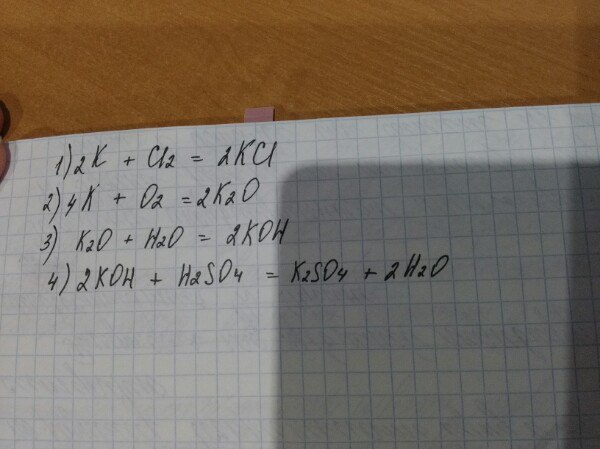 1) 2K + Cl2 = 2KCl
2) 4K + O2 = 2K2O
3) K2O + H2O = 2KOH
4) 2KOH + H2SO4 = K2SO4 + 2H2O